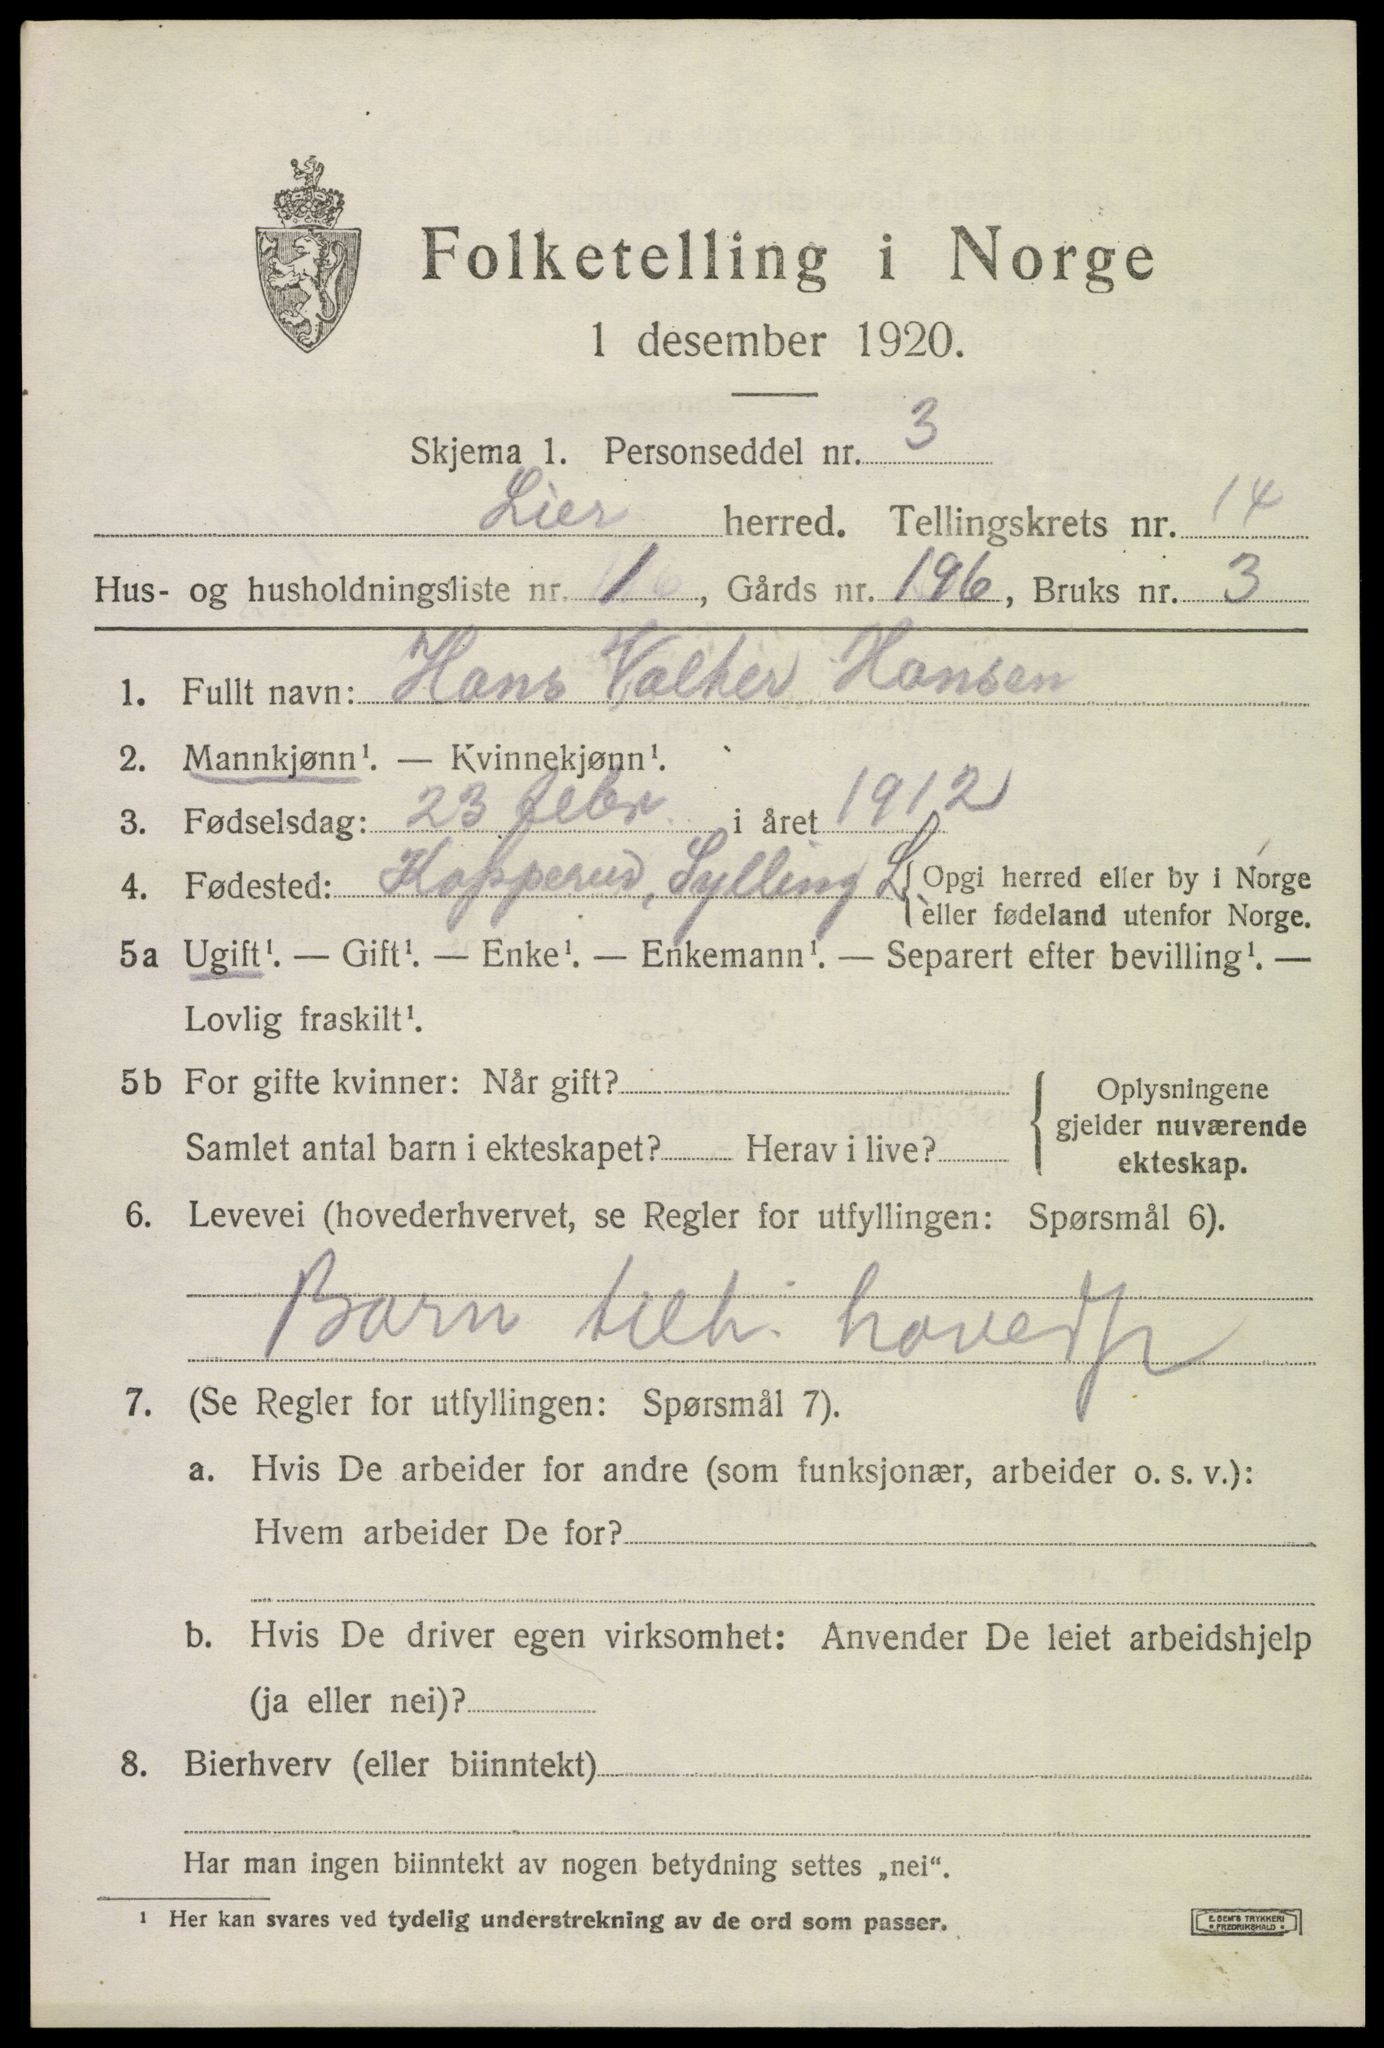 Folketelling i Norge
1 desember 1920.
Skjema 1. Personseddel nr. 3
Lier herred. Tellingskrets nr. 14
Hus- og husholdningsliste nr. , Gårds nr. 196, Bruks nr. 3
1. Fullt navn: Hans Valther Hansen
2. Mannkjønn¹. — Kvinnekjønn¹.
3. Fødselsdag: 23 febr. i året 1912
4. Fødested: Kopperud, Sylling L { Opgi herred eller by i Norge
eller fødeland utenfor Norge.
5a Ugift¹. — Gift¹. — Enke¹. — Enkemann¹. — Separert efter bevilling¹. —
Lovlig fraskilt¹.
5b For gifte kvinner: Når gift?
Samlet antal barn i ekteskapet? Herav i live?
{ Oplysningene
gjelder nuværende
ekteskap.
6. Levevei (hovederhvervet, se Regler for utfyllingen: Spørsmål 6).
Barn hovedp
7. (Se Regler for utfyllingen: Spørsmål 7).
a. Hvis De arbeider for andre (som funksjonær, arbeider o. s. v.):
Hvem arbeider De for?
b. Hvis De driver egen virksomhet: Anvender De leiet arbeidshjelp
(ja eller nei)?
8. Bierhverv (eller biinntekt)
Har man ingen biinntekt av nogen betydning settes „nei“.
¹ Her kan svares ved tydelig understrekning av de ord som passer.
E. SEM'S TRYKKERI
• FREDRIKSHALD •